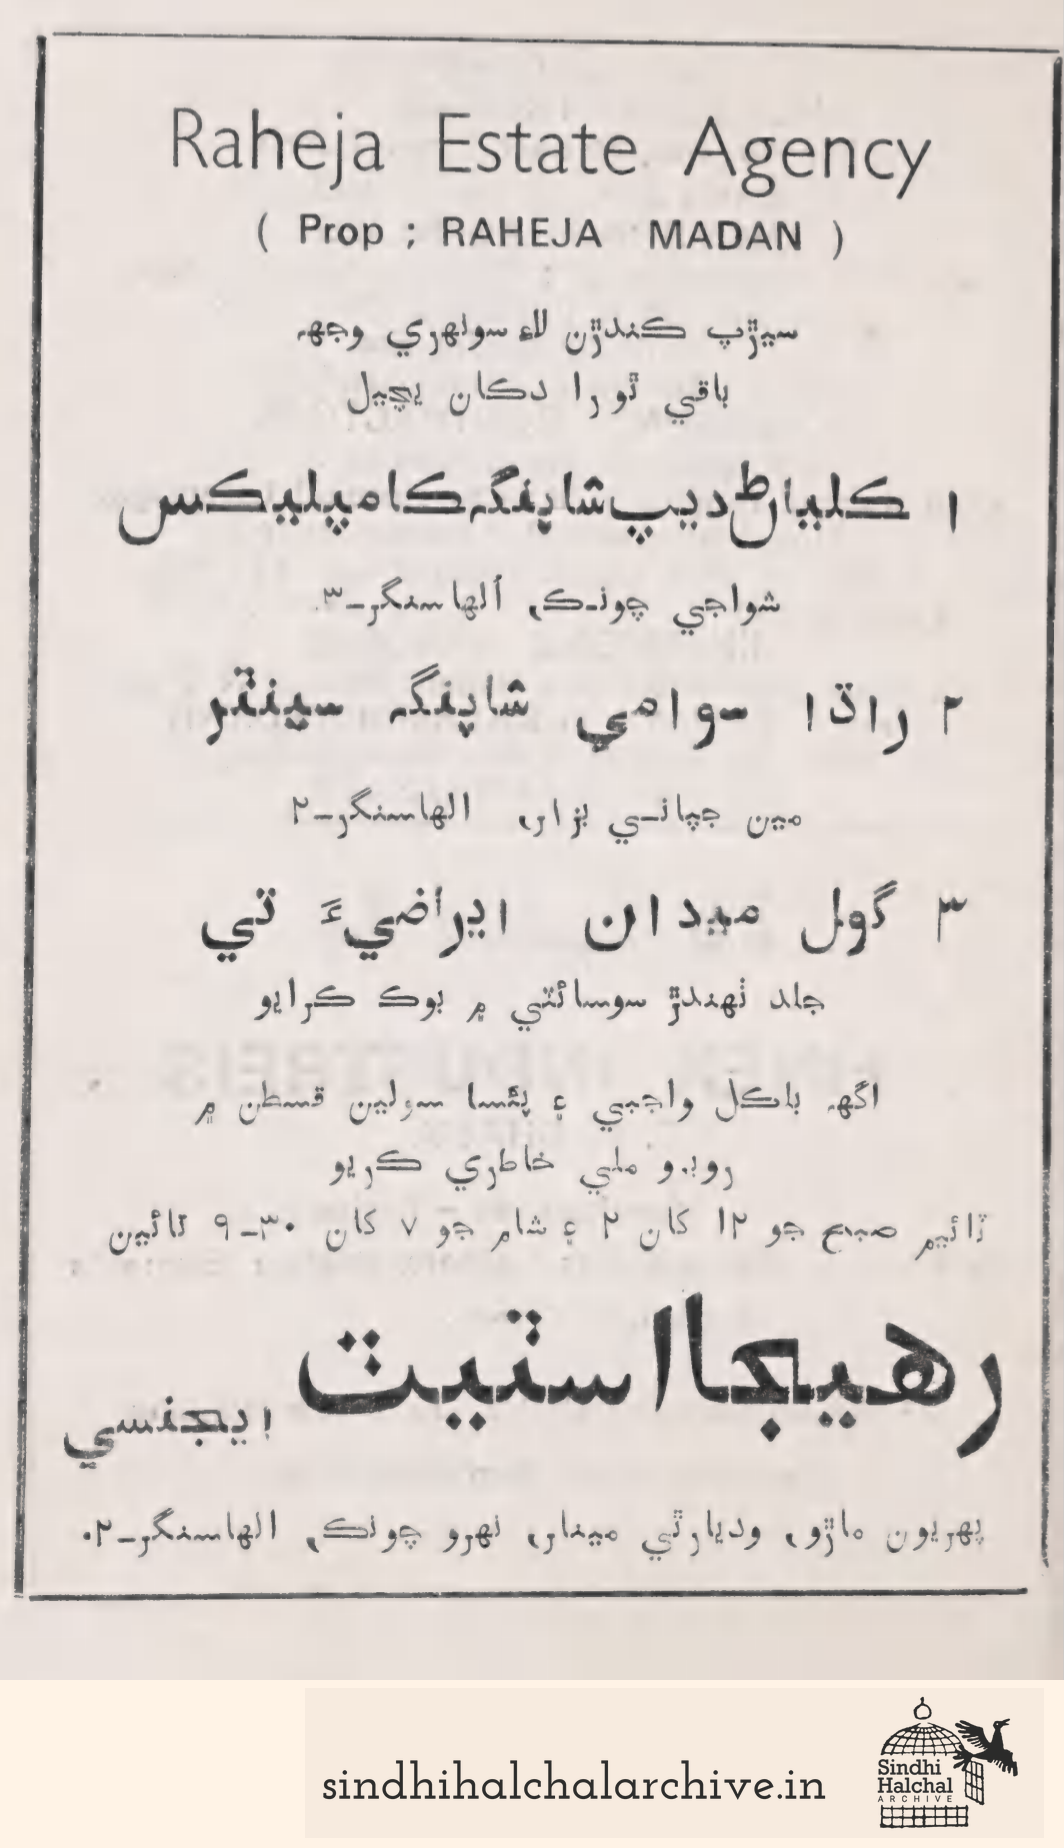 Raheja Estate Agency
( Prop ; RAHEJA MADAN )
سيڙپ ڪندڙن لاءِ سونهري وجهہ
باقي ٿورا دڪان بچيل
١ ڪلياڻ ديپ شاپنگہ ڪامپليڪس
شواجي چونڪ، اُلهاسنگر-٣.
٢ راڌا سوامي شاپنگہ سينٽر
مين جپاني بزار، الهاسنگر-٢
٣ گول ميدان ايراضيءَ تي
جلد ٺهندڙ سوسائٽي ۾ بوڪ ڪرايو
اگهہ باڪل واجبي ۽ پئسا سولين قسطن ۾
روبرو ملي خاطري ڪريو
ٽائيم صبح جو ١٢ کان ٢ ۽ شام جو ٧ کان ٣٠-٩ تائين
رهيجا اسٽيٽ ايجنسي
پهريون ماڙو، وديارٿي مينار، نهرو چونڪ، الهاسنگر-٢.
sindhihalchalarchive.in
Sindhi
Halchal
ARCHIVE